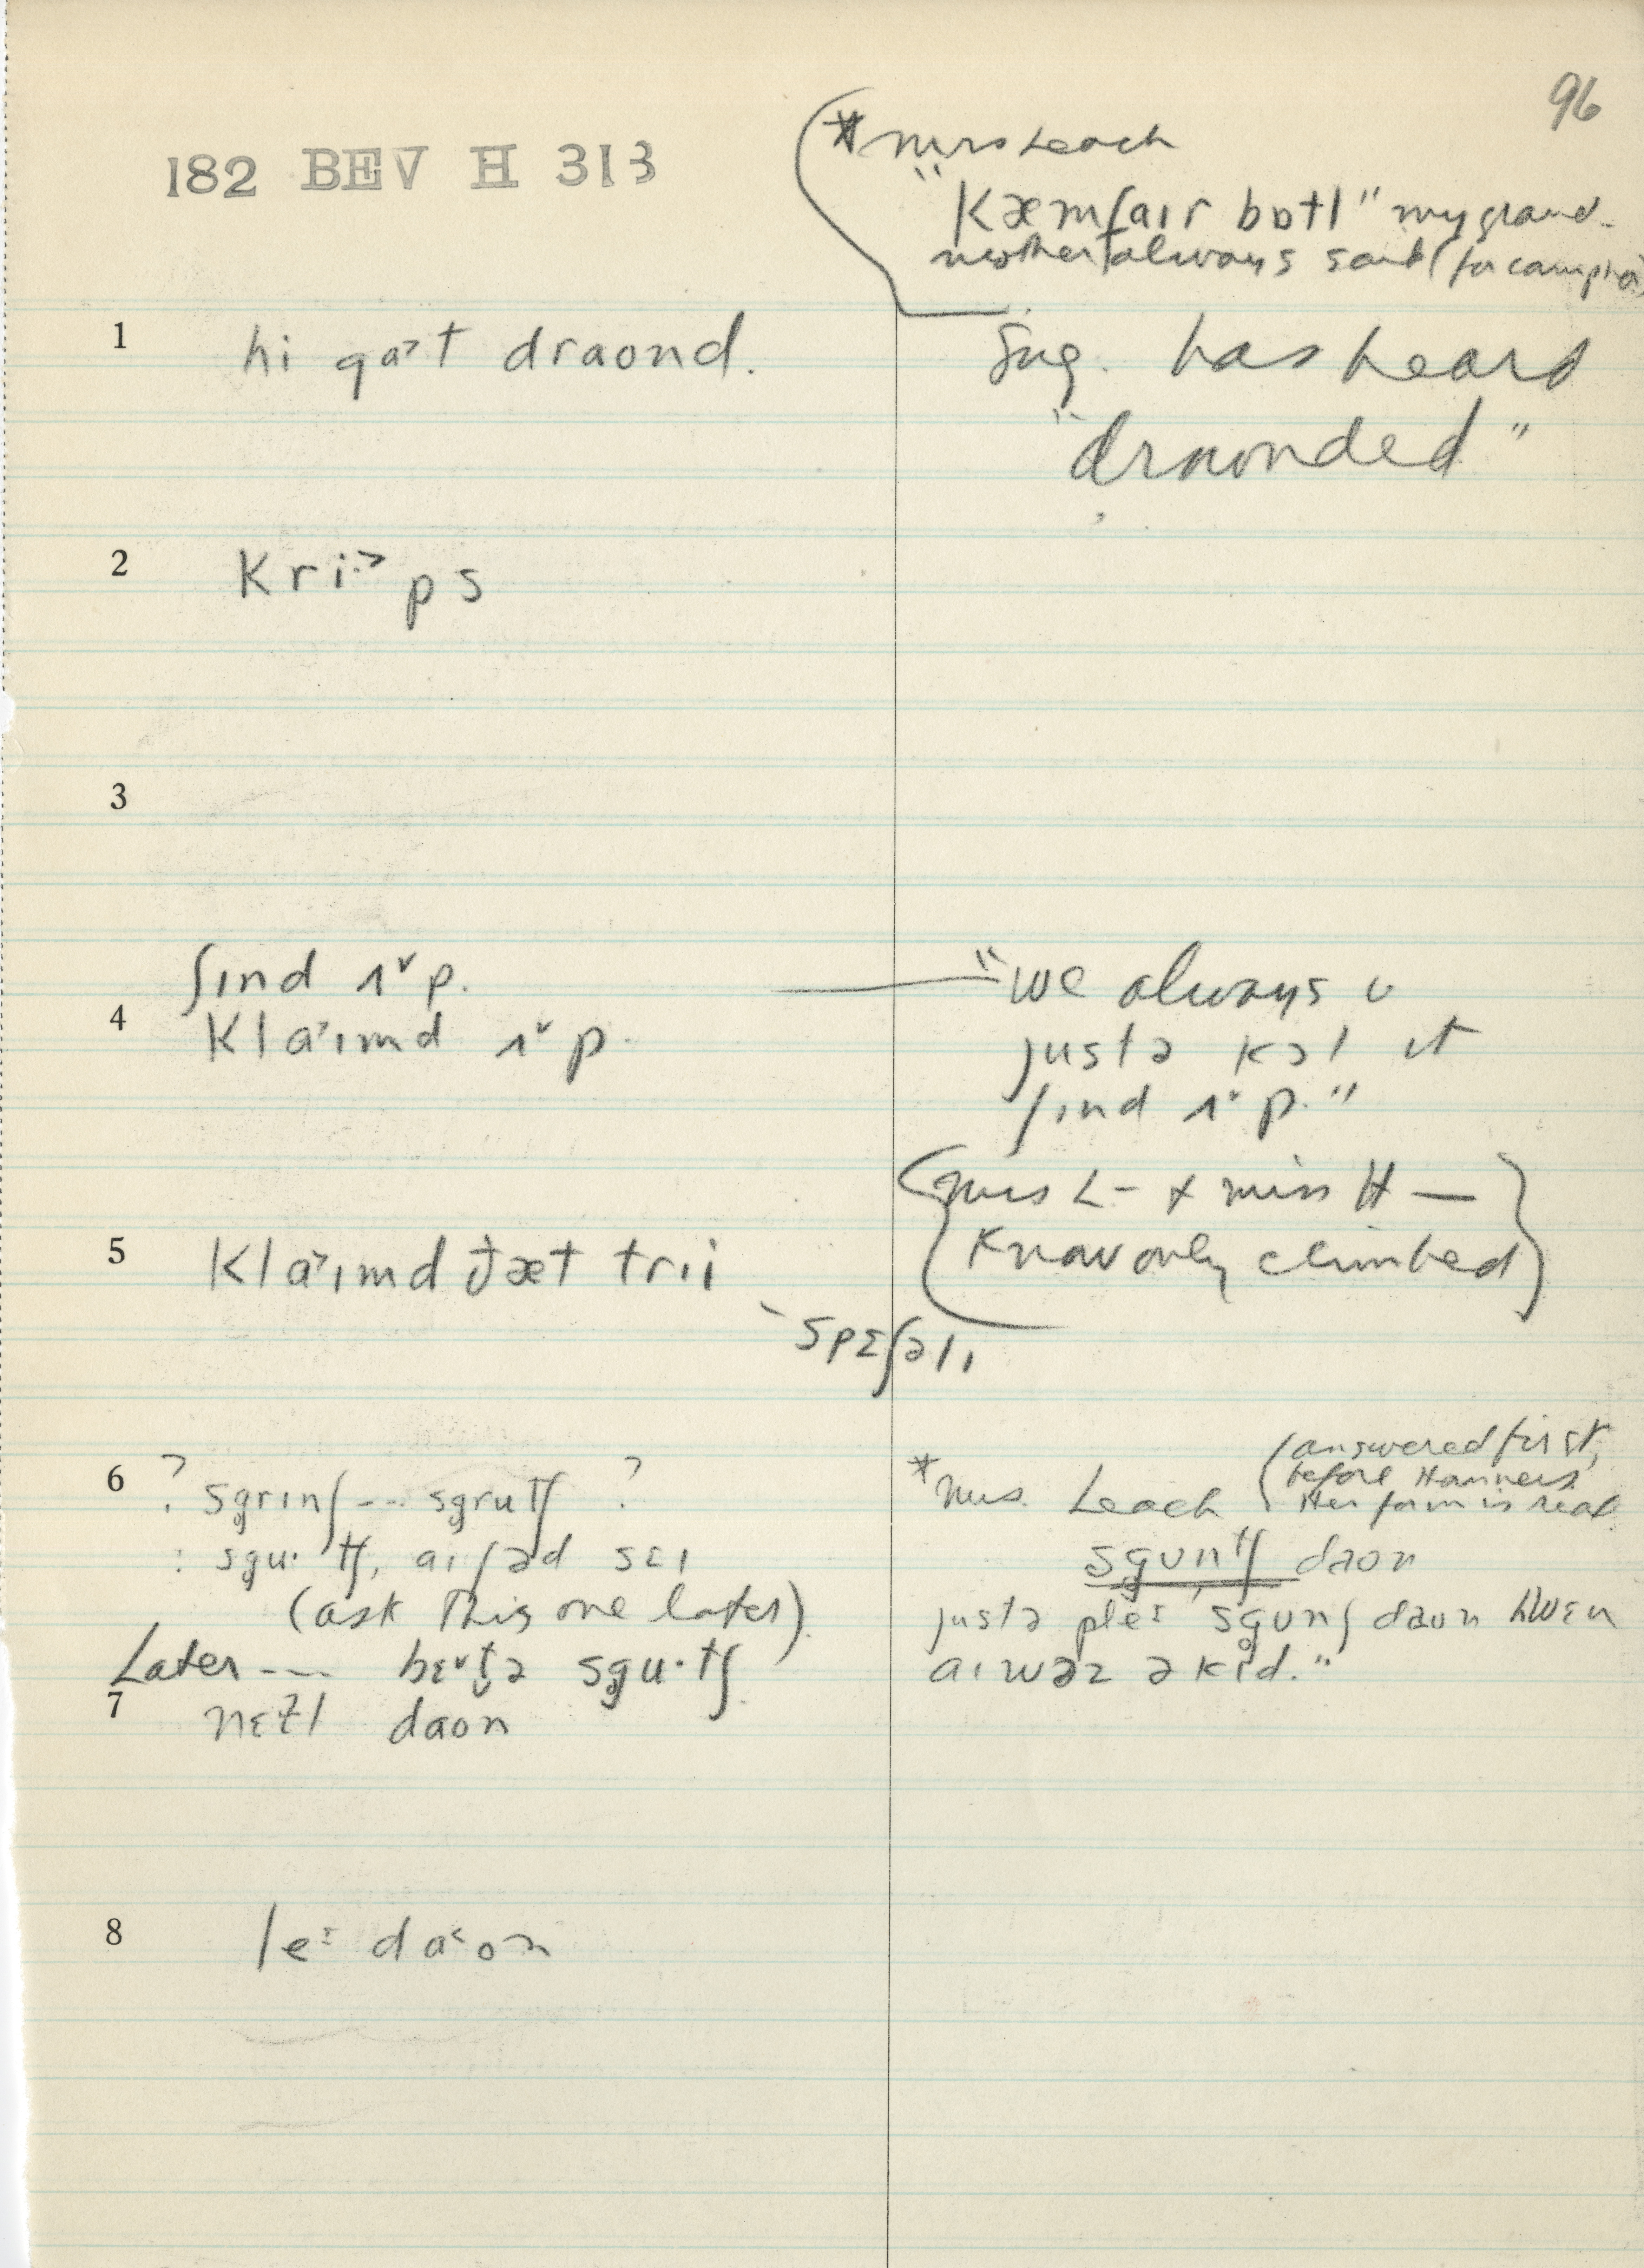 96
182 BEV H 313
* Mrs Leach
"kæmfaɪr bɒtl" my grand-
mother always said (for camphor
1 hi gɑ˃t draond.
Sug. has heard
"drownded"
2 kri·˃ps
ʃɪnd ʌ˅p.
4 klɑ˃ɪmd ʌ˅p.
"we always
justə kɔl it
ʃɪnd ʌ˅p."
(Mrs L- + Miss H—
know only climbed)
5 klɑ˃ɪmd ðæt trɪi
spɛʃəlɪ
6 ? sgrɪnʃ --- sgrutʃ ?
: sgu·tʃ, aɪ ʃəd sɛɪ
(ask this one later)
Later --- bɛ˅t̬ə sgu·tʃ
* Mrs. Leach (answered first,
before Hanners.
Her form is real
sgʊntʃ daon
justə pleɪ sgʊnʃ daon hwɛn
aɪ wəz ə kɪd."
7 nɛɫl daon
8 leɪ dɑ˂on